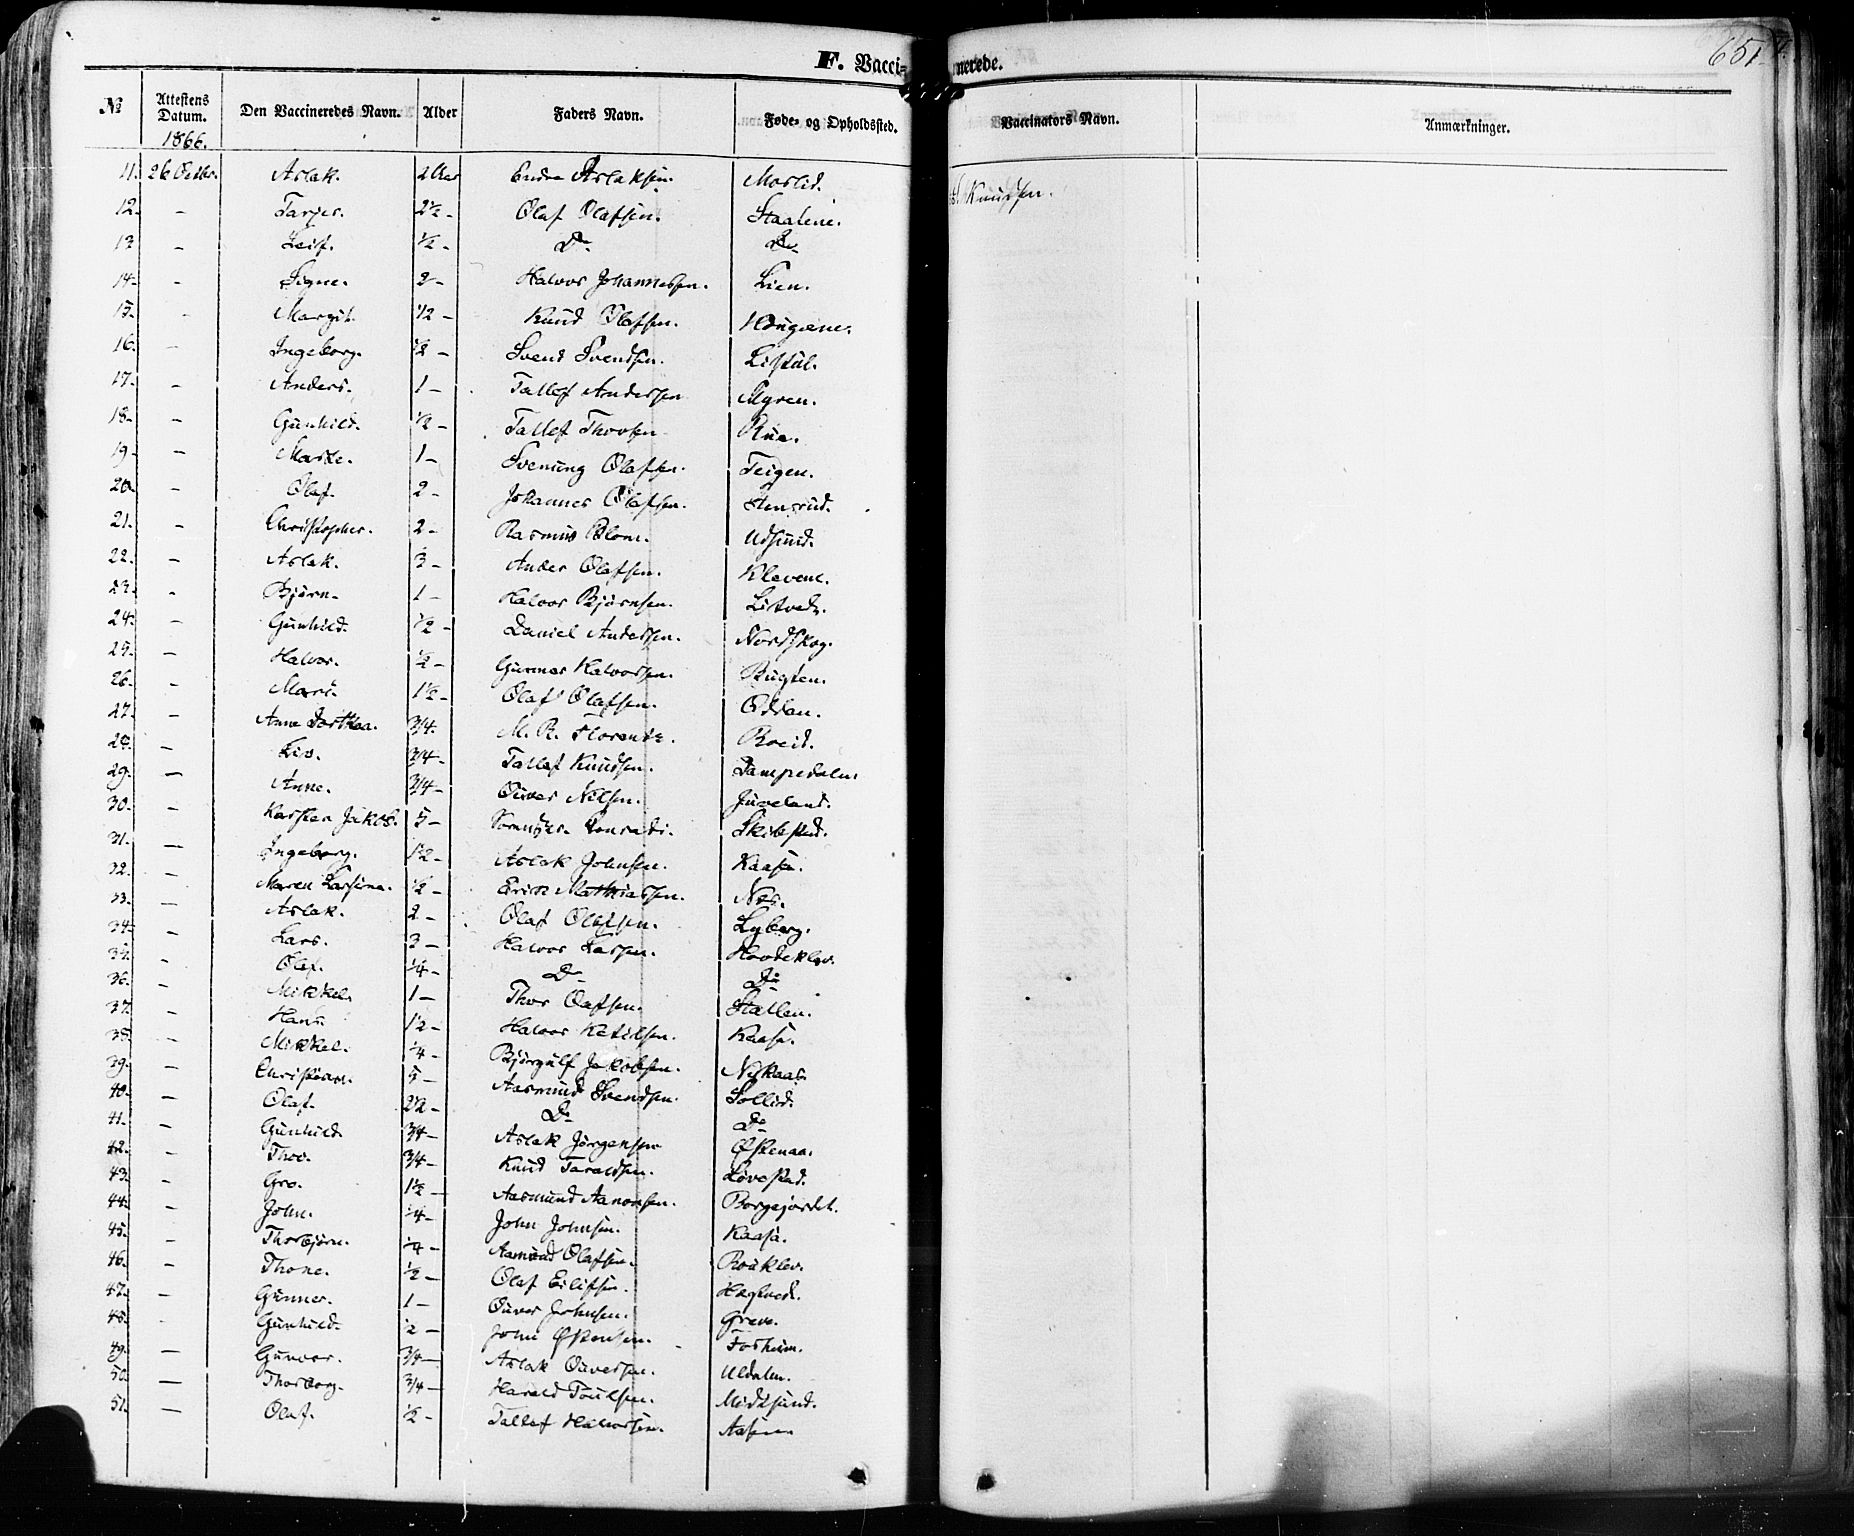 F. Vaccinerede. 651
№ Attestens Datum. Den Vaccineredes Navn. Alder Faders Navn. Føde- og Opholdssted. Vaccinators Navn. Anmærkninger.
1866.
11. 26 Octbr. Aslak. 2 Aar Endre Aslaksen. Moslid. Knudsen.
12. - Tarjer. 2½ - Olaf Olafsen. Staalene.
13. - Leif. ½ - Do Do
14. - Signe. 2 - Halvor Johannessen. Lien.
15. - Margit. 1/2 - Knud Olafsen. Haugene.
16. - Ingeborg. ½ - Svend Svendsen. Listul.
17. - Anders. 1 - Tallef Andersen Myren.
18. - Gunhild. ½ - Tallef Thovsen Rue.
19. - Marte. 1 - Svenung Olafsen. Teigen.
20. - Olaf. 2 - Johannes Olafsen. Stensrud.
21. - Christopher. 2 - Rasmus Blom. Udsund.
22. - Aslak. 3 - Ander Olafsen. Klevene.
23. - Bjørn. 1 - Halvor Bjørnsen. Listvedt.
24. - Gunhild. ½ - Daniel Andersen. Nordskog.
25. - Halvor. ½ - Gunnar Halvorsen. Bugten.
26. - Mari. 1½ - Olaf Olafsen. Oddan.
27. - Anne Dorthea. 3/4. M. R. Florentz. Breid.
28. - Liv. 3/4 - Tallef Knudsen. Dampedalen
29. - Anne. 3/4 - Ouver Nilsen. Juveland.
30. - Karsten Jakob. 5 - Conradi. Skibstad.
31. - Ingeborg. 1½ - Aslak Johnsen. Kaasa.
32. - Maren Karsine. ½ - Erik Mathiassen. Nes.
33. - Aslak. 2 - Olaf Olafsen. Lyberg.
34. - Lars. 3 - Halvor Larsen. Hovdeklev.
35. - Olaf. ¼ - Do Do
36. - Mikkel. 1 - Thor Olafsen. Stallen.
37. - Hans. 1½ - Halvor Ketilsen. Kaasa.
38. - Mikkel. ¼ - Bjørgulf Jakobsen. Nykaas.
39. - Christian. 5 - Aasmund Svendsen. Sollid.
40. - Olaf. 2½ - Do Do
41. - Gunhild 3/4 - Aslak Jørgensen Østenaa.
42. - Thov. 3/4 - Knud Taraldsen. Løvestad.
43. - Gro. 1½ - Aasmund Aanonsen. Borgejordet.
44. - John. ¼ - John Johnsen. Kaasa.
45. - Thorbjørn. ¼ - Aamund Olafsen. Rauklev.
46. - Thone. ½ - Olaf Eilifsen. Hagtvedt.
47. - Gunner. 1 - Ouver Johnsen. Greve.
48. - Gunhild. ½ - John Østensen. Forheim.
49. - Gunvor. 3/4 - Aslak Ouversen. Uldalen.
50. - Thorborg. 3/4 - Harald Poulsen. Midtsund.
51. - Olaf. ½ - Tallef Halvorsen. Aasen